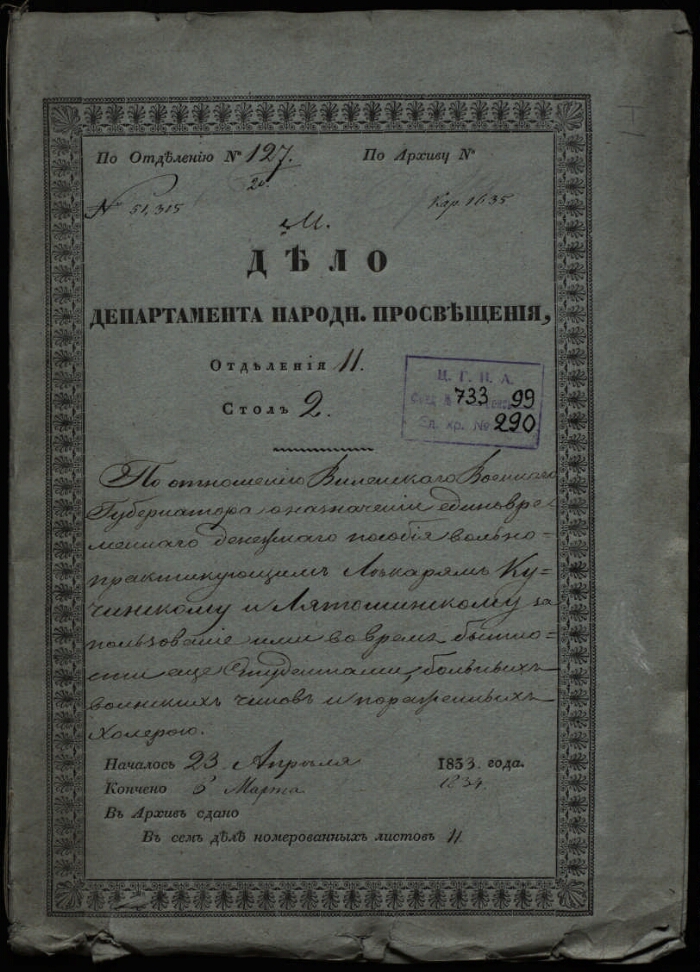 По Отдѣленію № 127. По Архиву №
2 ст.
№ 51,315 Кар. 1635
М.
ДѢЛО
ДЕПАРТАМЕНТА НАРОДН. ПРОСВѢЩЕНІЯ,
Отдѣленія 11.
Столъ 2.
Ц. Г. И. А.
Фонд № 733 99
Ед. хр. № 290
По отношенію Виленскаго Военнаго
Губернатора о назначеніи единовре-
меннаго денежнаго пособія вольно-
практикующимъ Лѣкарямъ Ку-
чинскому и Лятошинскому за
пользованіе ими во время бытно-
сти еще Студентами, больныхъ
воинскихъ чиновъ и пораженныхъ
холерою.
Началось 23 Апрѣля 1833. года.
Кончено 6 Марта 1834.
Въ Архивъ сдано
Въ семъ дѣлѣ номерованныхъ листовъ 11.